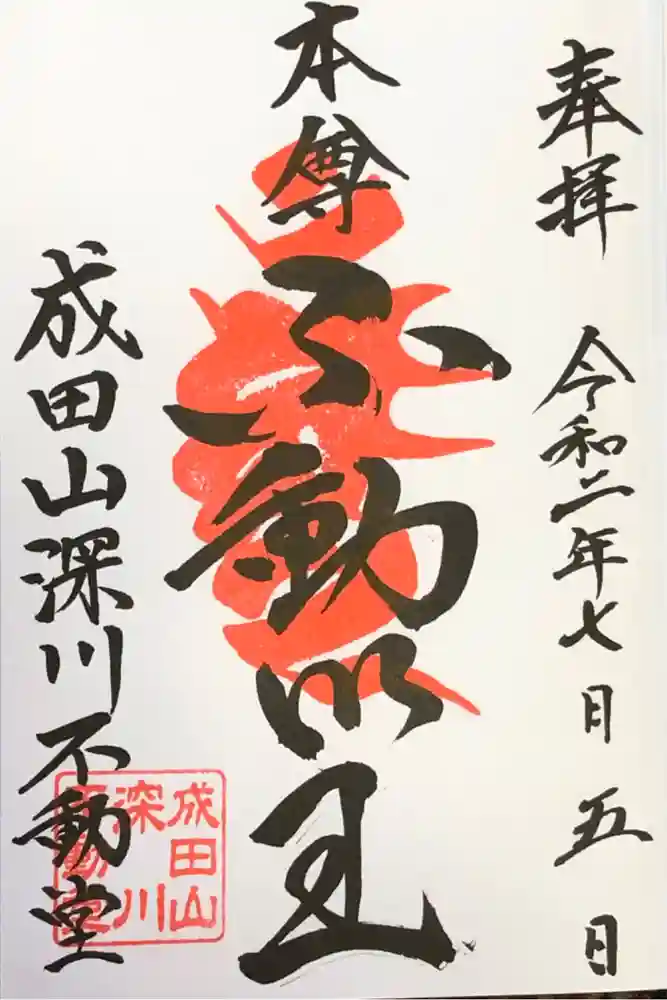 奉拝　令和二年七月五日
本尊不動明王
成田山深川不動堂
成田山
深川
不動堂